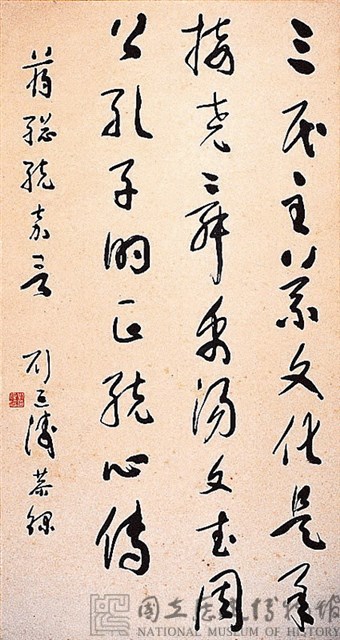 三民主義文化是承
接堯舜禹湯文武周
公孔子的正統心傳
蔣總統嘉言
劉延濤恭錄
國立歷史博物館
NATIONAL MUSEUM OF HISTORY